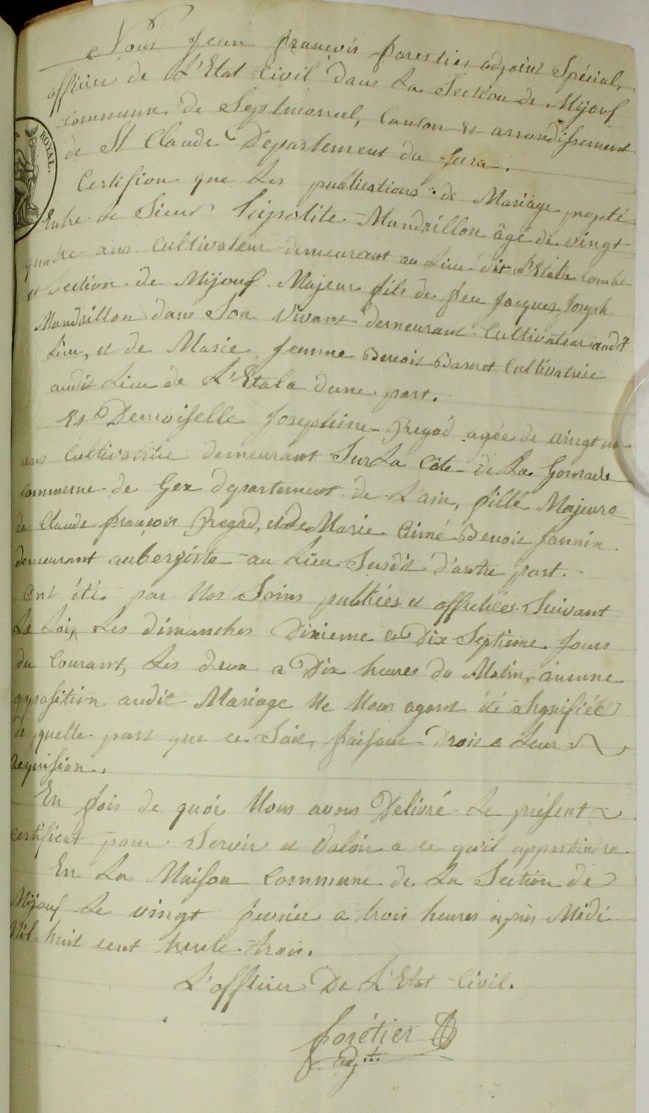 Nous Jean François forestier adjoint Spécial,
officier de L'Etat Civil dans La Section de Mijouf
commune de Septmoncel, Canton et arrondissement
de St Claude Departement du Jura.
Certifion que Les publications de Mariage projeté
Entre le Sieur hipolite Mandrillon âgé de vingt
quatre ans Cultivateur demeurant au Lieu dit
et Section de Mijouf Majeur fils de feu Jacques Joseph
Mandrillon dans Son vivant demeurant Cultivateur audt
Lieu, et de Marie Jemme Benoit Barnet Cultivatrice
audit Lieu de L'Etala dune part.
Et Demoiselle Josephine Regad agée de vingt un
ans Cultivatrice demeurant Sur La Côte de La
Commune de Gex departement de Lain, fille Majeure
de Claude françois Regad, et de Marie Aimé Benoit Jannin
demeurant aubergiste au Lieu Susdit d'autre part.
Ont été par Nos Soins publiées et affichées Suivant
La Loi, Les dimanches Dixieme et Dix Septieme Jours
du Courant, Les deux a Dix heures du Matin, aucune
opposition audit Mariage Ne Nous ayant été Signifiée
de quelle part que ce Soit, faisant Droit a Leur
requision.
En fois de quoi Nous avons Délivré Le présent
certificat pour Servir et Valoir a ce qu'il appartiendra
En La Maison Commune de La Section de
Mijouf Le vingt fevrier a trois heures après Midi
Mil huit cent trente trois.
L'officier De L'Etat Civil.
forétier
adjt
ROYAL.